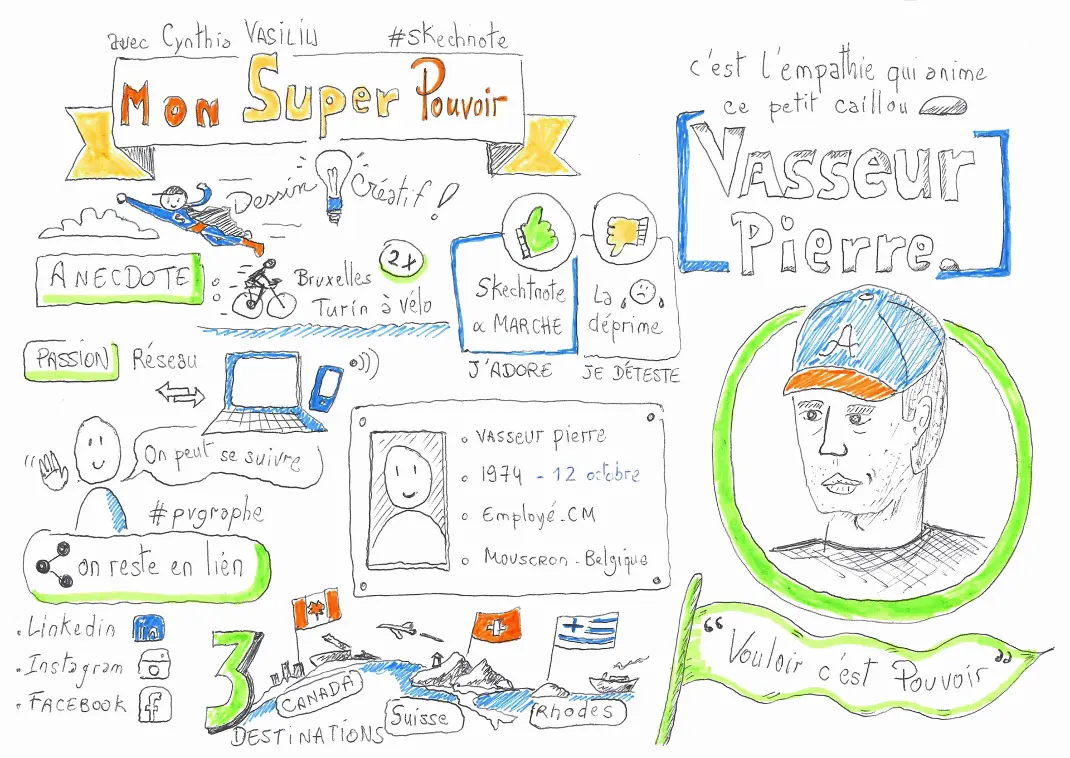 avec Cynthia VASILIU #skechnote
Mon Super Pouvoir
Dessin Créatif !
ANECDOTE :
Bruxelles 2x
Turin à vélo
Skechtnote
& MARCHE
J'ADORE
La
déprime
JE DÉTESTE
PASSION Réseau
On peut se suivre
#pvgraphe
on reste en lien
• Linkedin in
• Instagram
• FACEBOOK f
VASSEUR pierre
1974 - 12 octobre
Employé_CM
MOUSCRON - Belgique
3
DESTINATIONS
CANADA
Suisse
Rhodes
c'est l'empathie qui anime
ce petit caillou
VASSEUR
Pierre.
A
“ Vouloir c'est Pouvoir ”